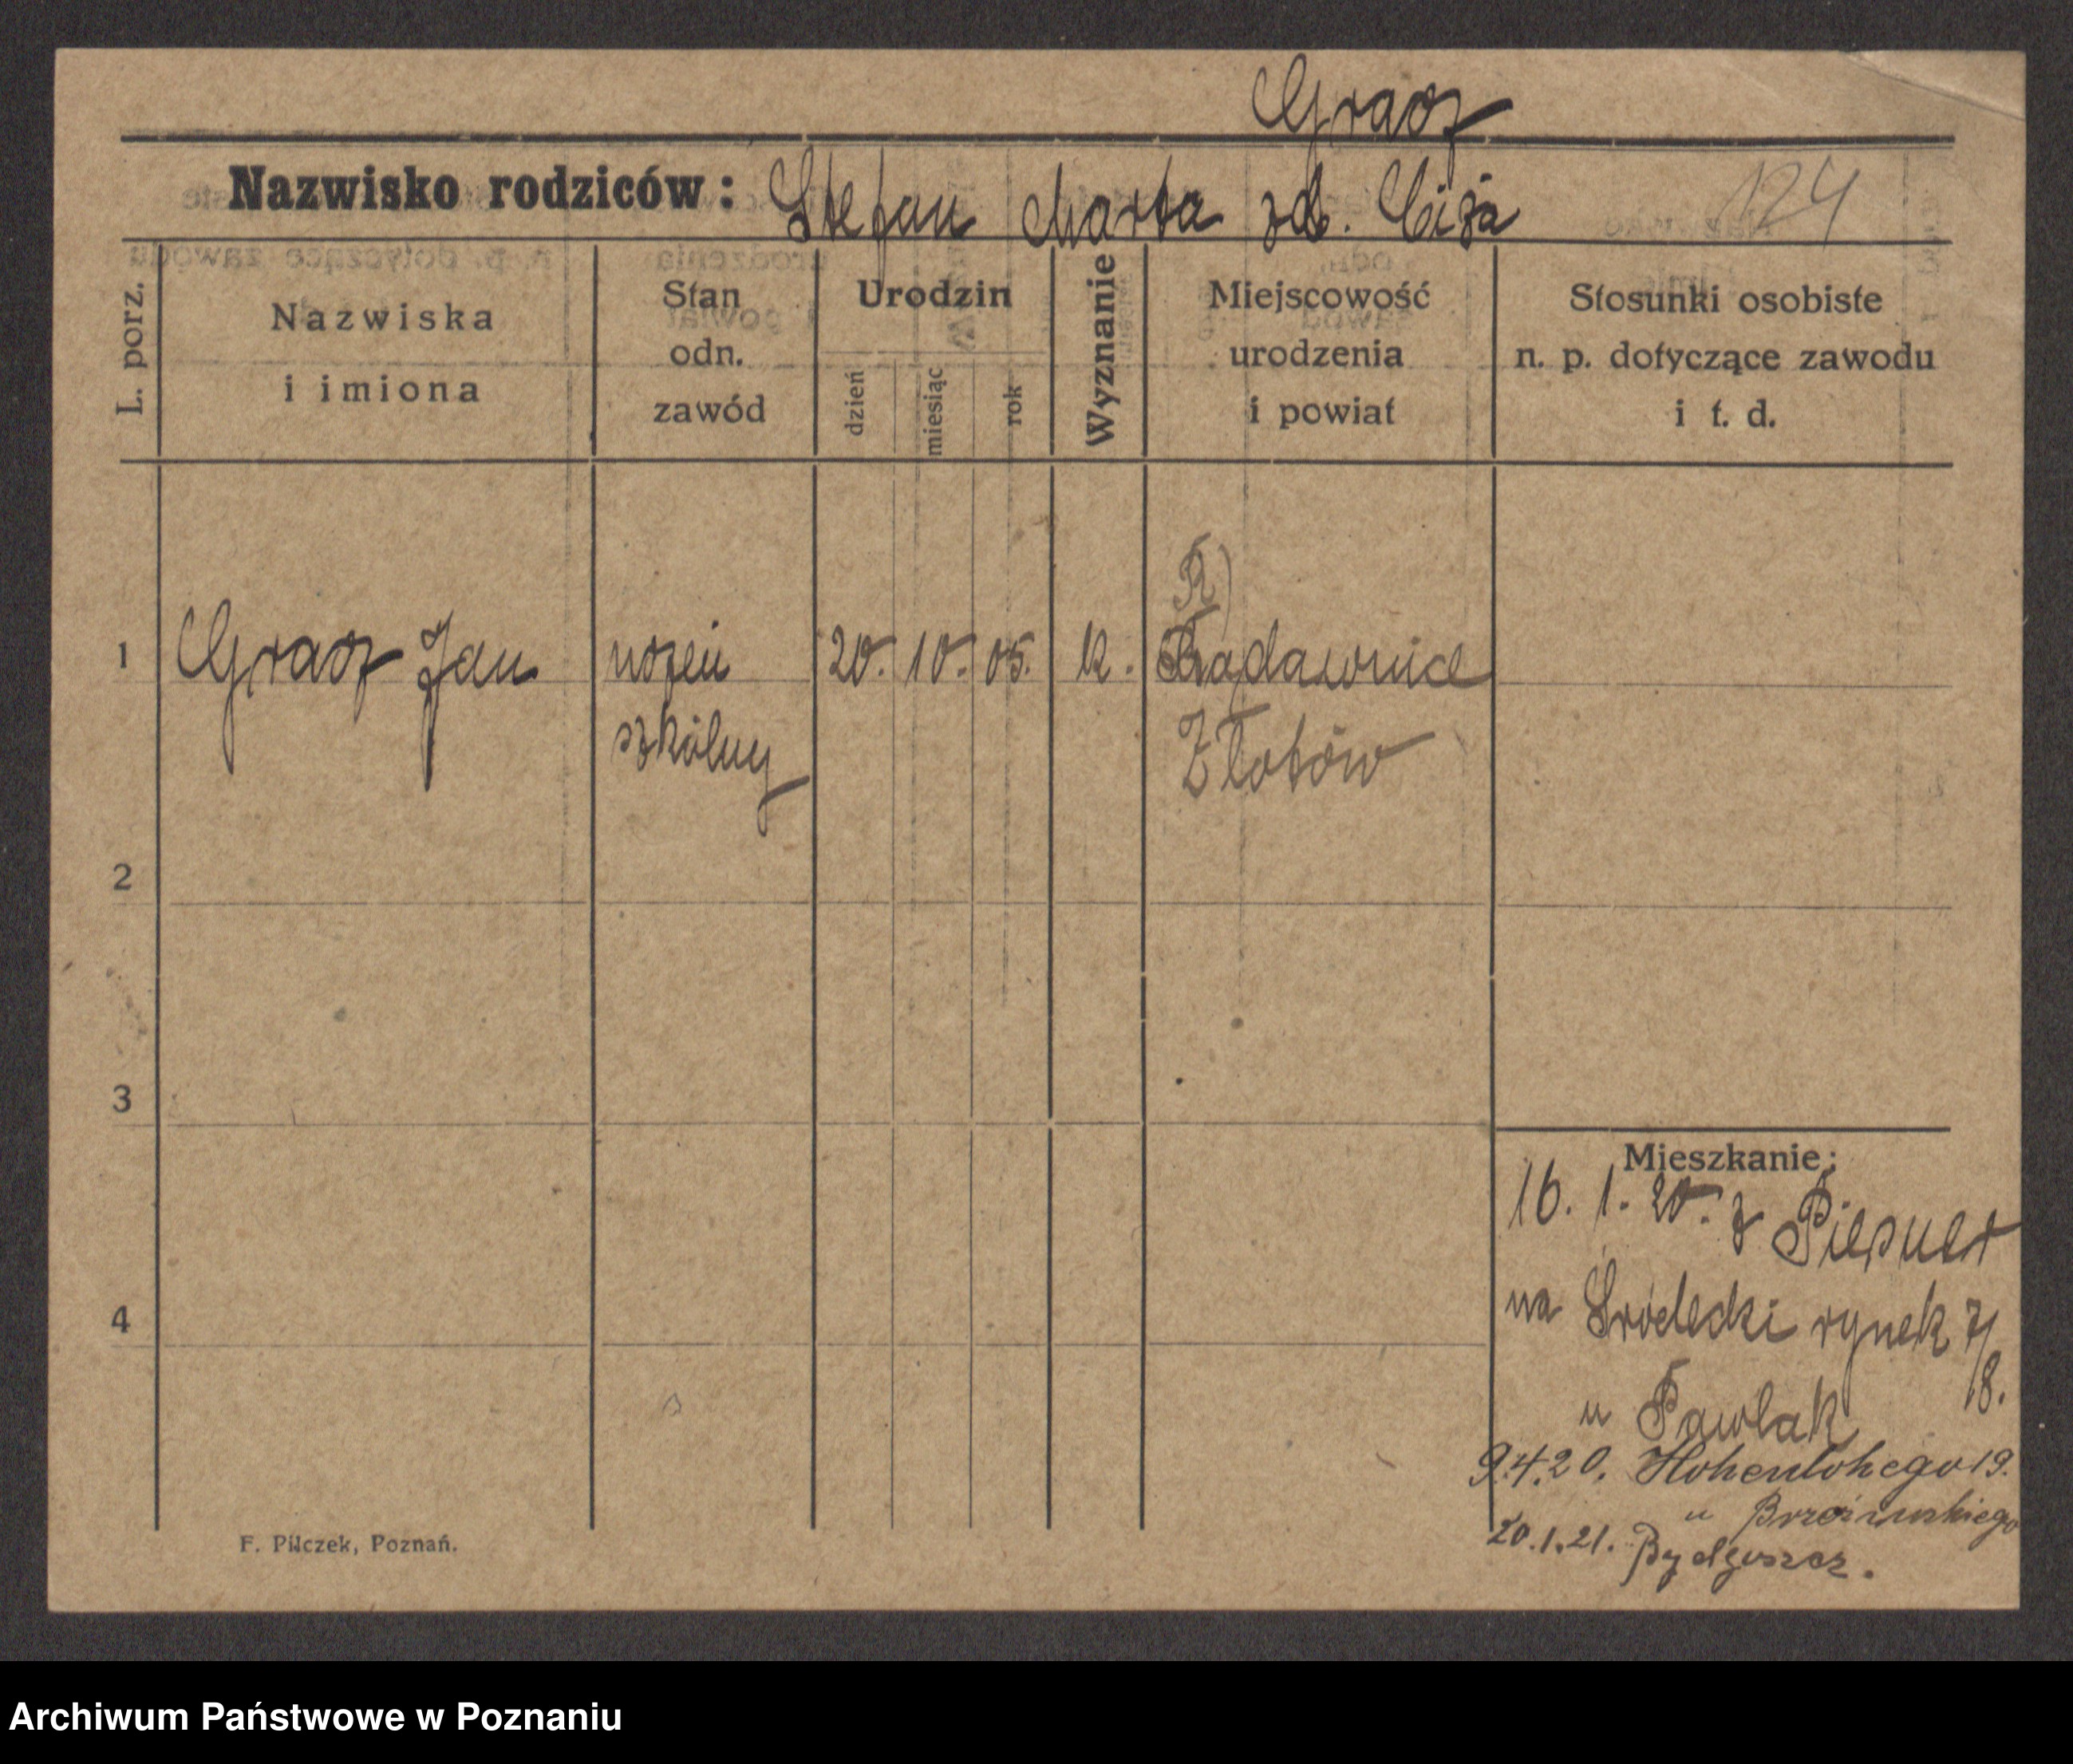 Gracz
Nazwisko rodziców: Stefan Marta zd. Ciża
124
L. porz.
Nazwiska
i imiona
Stan
odn.
zawód
Urodzin
dzień
miesiąc
rok
Wyznanie
Miejscowość
urodzenia
i powiat
Stosunki osobiste
n. p. dotyczące zawodu
i t. d.
R)
1 Gracz Jan uczeń 20. 10. 05. k. Radawnice
szkólny Złotów
2
3
4
Mieszkanie:
16. 1. 20. z
na Śródecki rynek 7/
18.
u Pawlak
9.4.20. Hohenlohego 19.
u
20.1.21. Bydgoszcz.
F. Pilczek, Poznań.
Archiwum Państwowe w Poznaniu